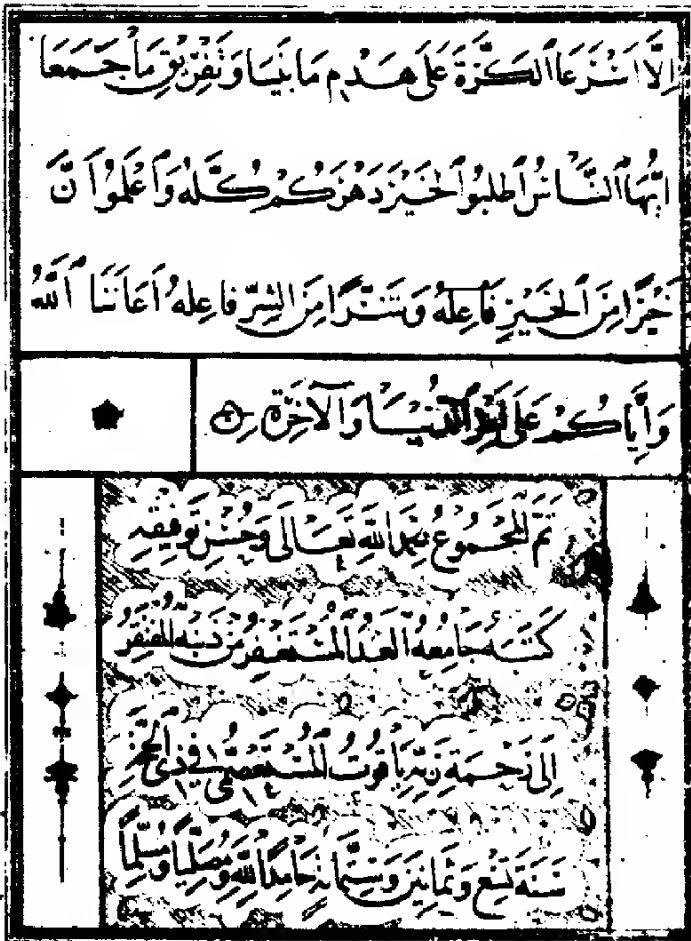 اِلَّا اَسْرَعَا الْكَرَّةَ عَلَى هَدْمِ مَا بَنَيَا وَتَفْرِيقِ مَا جَمَعَا
اَيُّهَا النَّاسُ اطْلُبُوا الْخَيْرَ دَهْرَكُمْ كُلَّهُ وَاعْلَمُوا اَنَّ
خَيْرًا مِنَ الْخَيْرِ فَاعِلُهُ وَشَرًّا مِنَ الشَّرِّ فَاعِلُهُ اَعَانَنَا اللّٰهُ
وَاِيَّاكُمْ عَلَى الدُّنْيَا وَالْآخِرَةِ
تَمَّ الْمَجْمُوعُ بِحَمْدِ اللّٰهِ تَعَالَى وَحُسْنِ تَوْفِيقِهِ
كَتَبَهُ جَامِعُهُ الْعَبْدُ الْمُسْتَغْفِرُ مِنْ ذَنْبِهِ الْمُفْتَقِرُ
اِلَى رَحْمَةِ رَبِّهِ يَاقُوتُ الْمُسْتَعْصِمِيُّ فِي ذِي الْحِجَّةِ
سَنَةَ تِسْعٍ وَثَمَانِينَ وَسِتِّمِائَةٍ حَامِدًا لِلّٰهِ وَمُصَلِّيًا وَمُسَلِّمًا